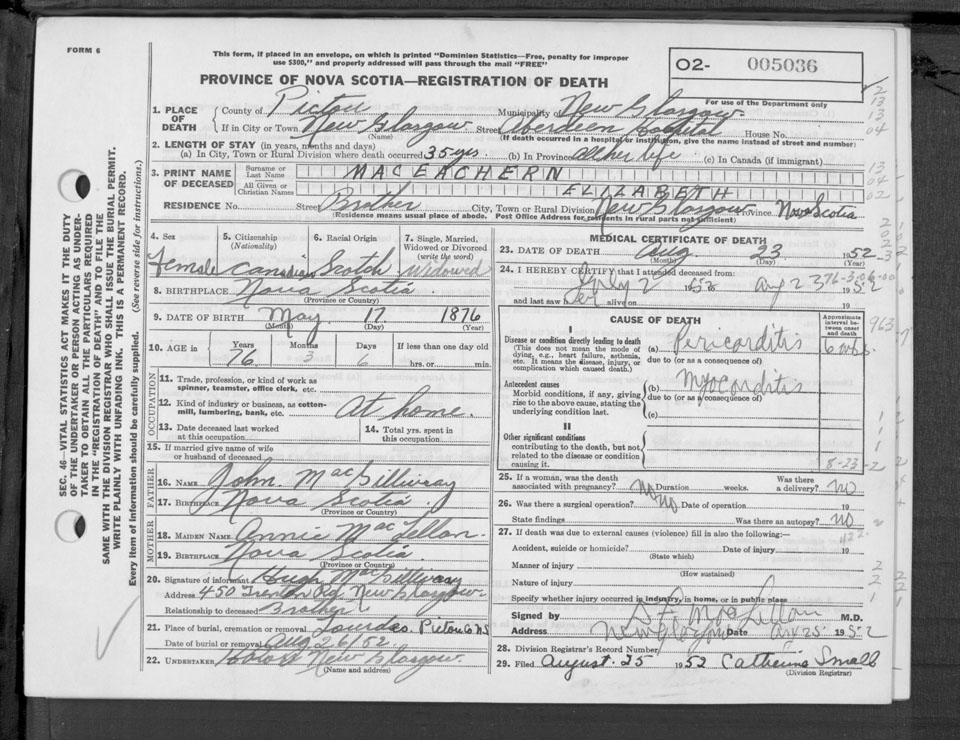 FORM 6
This form, if placed in an envelope, on which is printed "Dominion Statistics—Free, penalty for improper
use $300," and properly addressed will pass through the mail "FREE"
PROVINCE OF NOVA SCOTIA—REGISTRATION OF DEATH
O2- 005036
For use of the Department only
1. PLACE OF DEATH County of Pictou Municipality of New Glasgow
If in City or Town New Glasgow Street Aberdeen Hospital House No.
(Name) (If death occurred in a hospital or institution, give the name instead of street and number)
2. LENGTH OF STAY (in years, months and days)
(a) In City, Town or Rural Division where death occurred 35 yrs. (b) In Province all her life (c) In Canada (if immigrant)
3. PRINT NAME OF DECEASED Surname or Last Name MACEACHERN
All Given or Christian Names ELIZABETH
RESIDENCE No. Street Brother City, Town or Rural Division New Glasgow Province Nova Scotia
(Residence means usual place of abode. Post Office Address for residents in rural parts not sufficient)
4. Sex 5. Citizenship (Nationality) 6. Racial Origin 7. Single, Married, Widowed or Divorced (write the word)
Female Canadian Scotch Widowed
8. BIRTHPLACE Nova Scotia
(Province or Country)
9. DATE OF BIRTH May 17 1876
(Month) (Day) (Year)
10. AGE in Years Months Days If less than one day old
76 3 6 hrs. or min.
OCCUPATION
11. Trade, profession, or kind of work as spinner, teamster, office clerk, etc.
12. Kind of industry or business, as cotton-mill, lumbering, bank, etc. At home.
13. Date deceased last worked at this occupation
14. Total yrs. spent in this occupation
15. If married give name of wife or husband of deceased
FATHER
16. NAME John MacGillivray
17. BIRTHPLACE Nova Scotia
(Province or Country)
MOTHER
18. MAIDEN NAME Annie MacLellan
19. BIRTHPLACE Nova Scotia
(Province or Country)
20. Signature of informant Hugh MacGillivray
Address 450 Trenton Rd. New Glasgow
Relationship to deceased Brother
21. Place of burial, cremation or removal Lourdes. Pictou Co NS
Date of burial or removal Aug 26/52
22. UNDERTAKER New Glasgow.
(Name and address)
MEDICAL CERTIFICATE OF DEATH
23. DATE OF DEATH Aug. 23 1952
(Month) (Day) (Year)
24. I HEREBY CERTIFY that I attended deceased from:
July 2 1952 Aug 23 1952
and last saw her alive on 19
CAUSE OF DEATH
Approximate interval between onset and death
I
Disease or condition directly leading to death (a) Pericarditis 6 wks.
(This does not mean the mode of dying, e.g., heart failure, asthenia, etc. It means the disease, injury, or complication which caused death.)
due to (or as a consequence of)
Antecedent causes (b) Myocarditis
Morbid conditions, if any, giving rise to the above cause, stating the underlying condition last.
due to (or as a consequence of)
(c)
II
Other significant conditions
contributing to the death, but not related to the disease or condition causing it.
8-23-2
25. If a woman, was the death associated with pregnancy? No Duration weeks. Was there a delivery? No
26. Was there a surgical operation? No Date of operation 19
State findings Was there an autopsy? No
27. If death was due to external causes (violence) fill in also the following:—
422
Accident, suicide or homicide? Date of injury 19
(State which)
Manner of injury
(How sustained)
Nature of injury
Specify whether injury occurred in industry, in home, or in public place
Signed by MacLellan M.D.
Address New Glasgow Date Aug 25 1952
28. Division Registrar's Record Number
29. Filed August 25 1952 Catherine Small
(Division Registrar)
SEC. 46—VITAL STATISTICS ACT MAKES IT THE DUTY
OF THE UNDERTAKER OR PERSON ACTING AS UNDER-
TAKER TO OBTAIN ALL THE PARTICULARS REQUIRED
IN THE "REGISTRATION OF DEATH" AND TO FILE THE
SAME WITH THE DIVISION REGISTRAR WHO SHALL ISSUE THE BURIAL PERMIT.
WRITE PLAINLY WITH UNFADING INK. THIS IS A PERMANENT RECORD.
Every item of information should be carefully supplied. (See reverse side for instructions.)